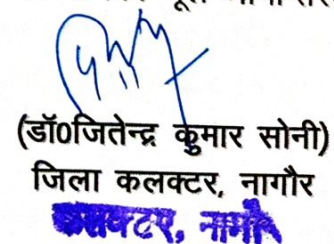 (डॉ0जितेन्द्र कुमार सोनी)
जिला कलक्टर, नागौर
कलक्टर, नागौर